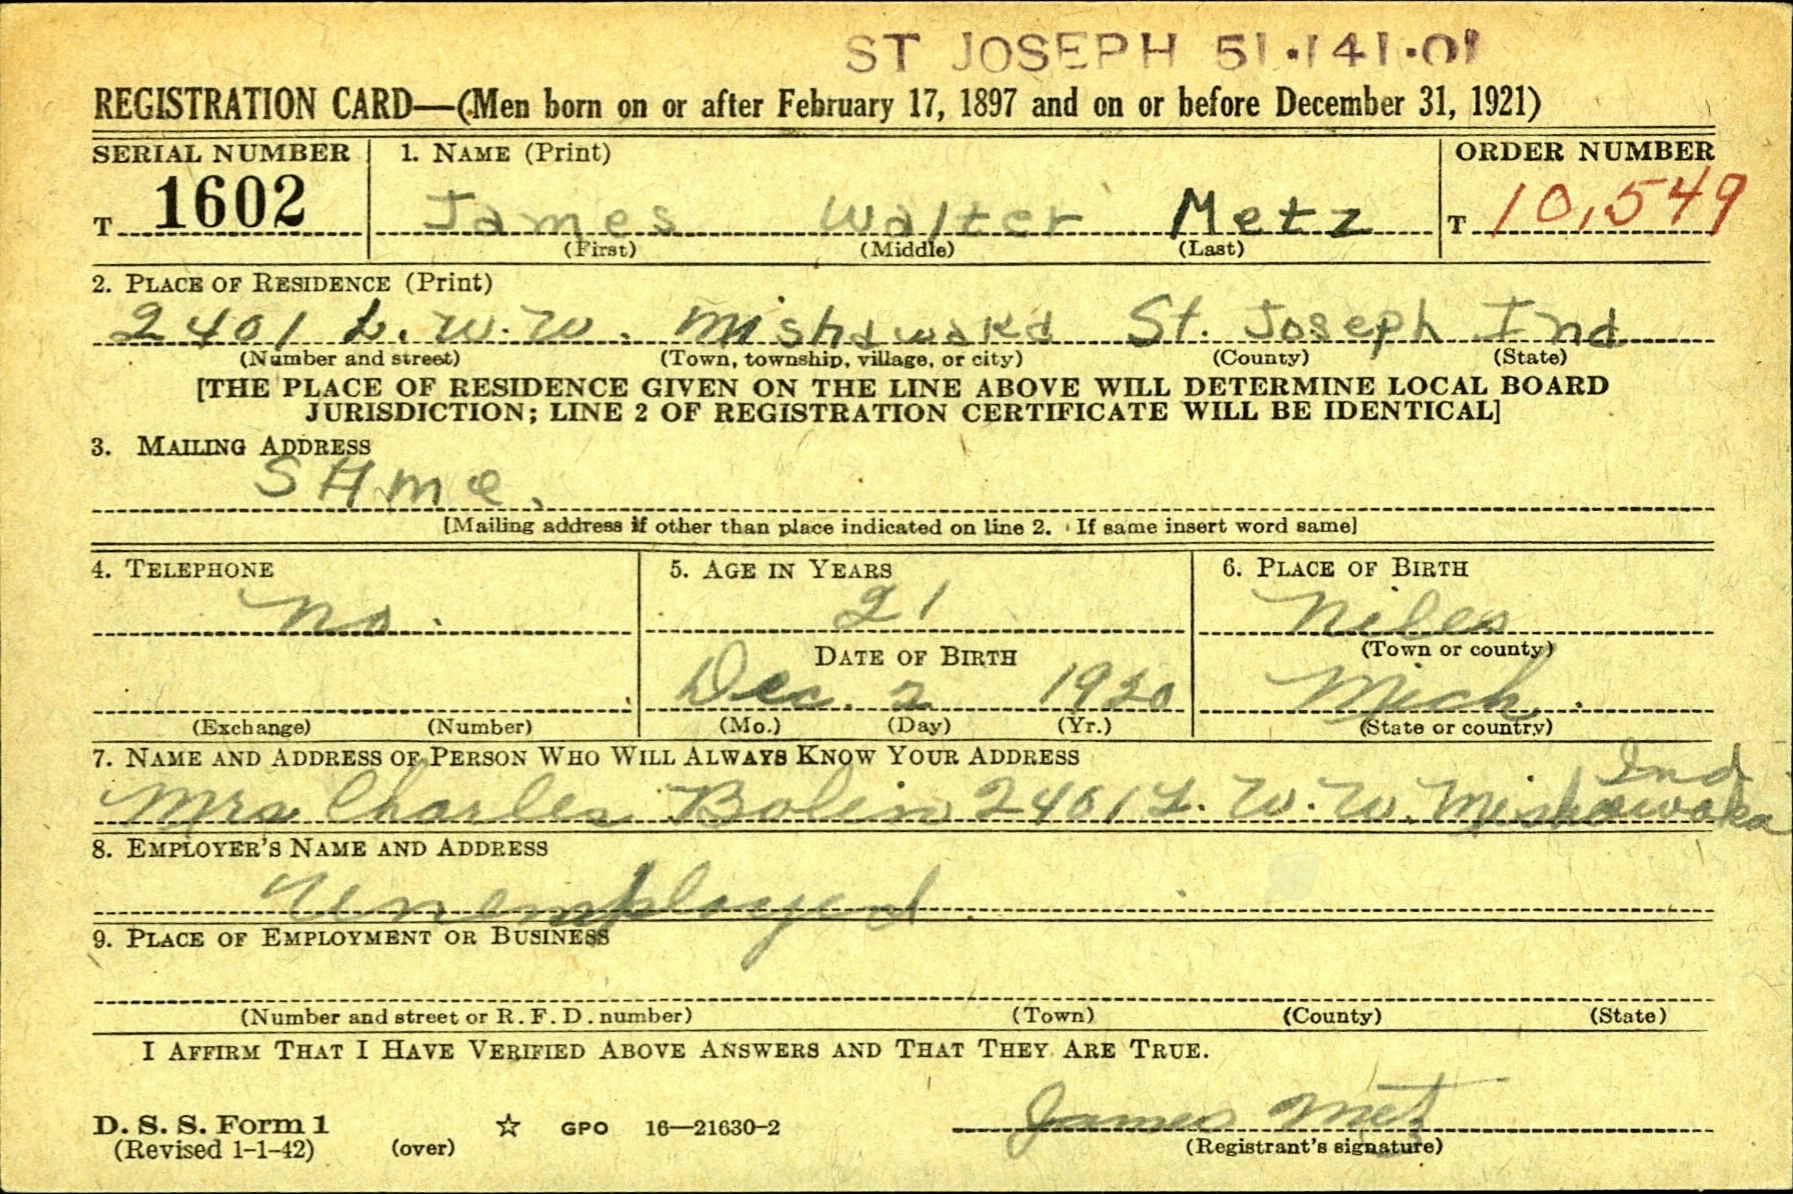 ST JOSEPH 51·141·01
REGISTRATION CARD—(Men born on or after February 17, 1897 and on or before December 31, 1921)
SERIAL NUMBER 1. NAME (Print) ORDER NUMBER
T 1602 James Walter Metz T 10,549
(First) (Middle) (Last)
2. PLACE OF RESIDENCE (Print)
2401 L. W. W. Mishawaka St. Joseph Ind
(Number and street) (Town, township, village, or city) (County) (State)
[THE PLACE OF RESIDENCE GIVEN ON THE LINE ABOVE WILL DETERMINE LOCAL BOARD
JURISDICTION; LINE 2 OF REGISTRATION CERTIFICATE WILL BE IDENTICAL]
3. MAILING ADDRESS
SAme.
[Mailing address if other than place indicated on line 2. If same insert word same]
4. TELEPHONE 5. AGE IN YEARS 6. PLACE OF BIRTH
no. 21 Niles
DATE OF BIRTH (Town or county)
Dec. 2 1920 Mich.
(Exchange) (Number) (Mo.) (Day) (Yr.) (State or country)
7. NAME AND ADDRESS OF PERSON WHO WILL ALWAYS KNOW YOUR ADDRESS
Mrs Charles Bolin 2401 L. W. W. Mishawaka Ind
8. EMPLOYER'S NAME AND ADDRESS
Unemployed.
9. PLACE OF EMPLOYMENT OR BUSINESS
(Number and street or R. F. D. number) (Town) (County) (State)
I AFFIRM THAT I HAVE VERIFIED ABOVE ANSWERS AND THAT THEY ARE TRUE.
James Metz
D. S. S. Form 1 ☆ GPO 16—21630-2
(Revised 1-1-42) (over) (Registrant's signature)